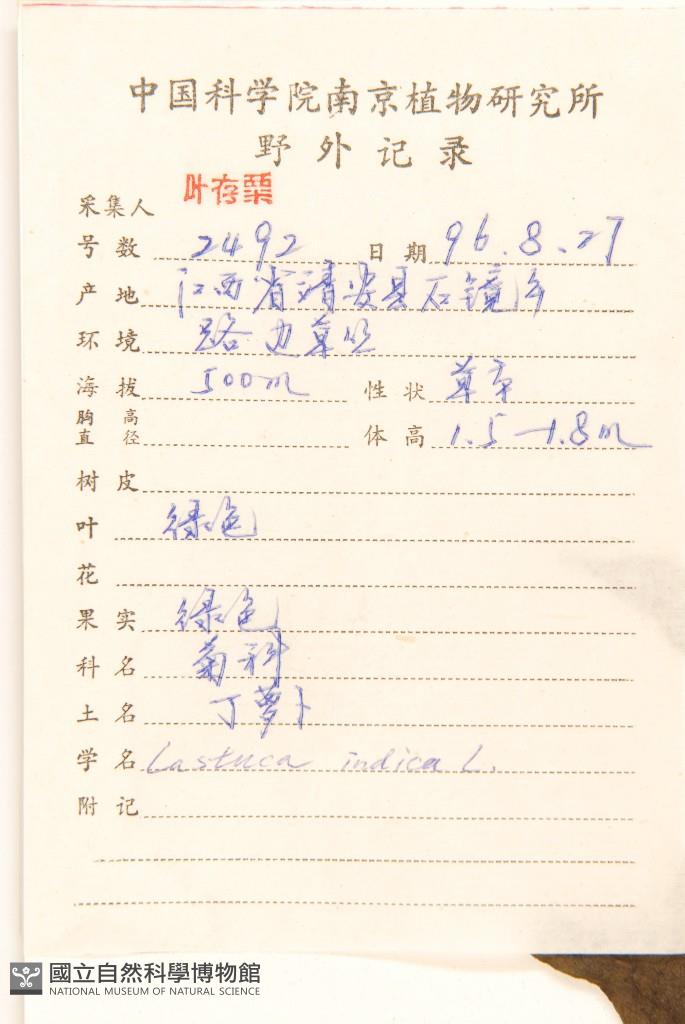 中国科学院南京植物研究所
野外记录
采集人 叶存粟
号数 2492 日期 96.8.27
产地 江西省靖安县石镜乡
环境 路边草丛
海拔 500m 性状 草本
胸高直径 体高 1.5-1.8m
树皮
叶 绿色
花
果实 绿色
科名 菊科
土名 丁萝卜
学名 Lastuca indica L.
附记
國立自然科學博物館
NATIONAL MUSEUM OF NATURAL SCIENCE